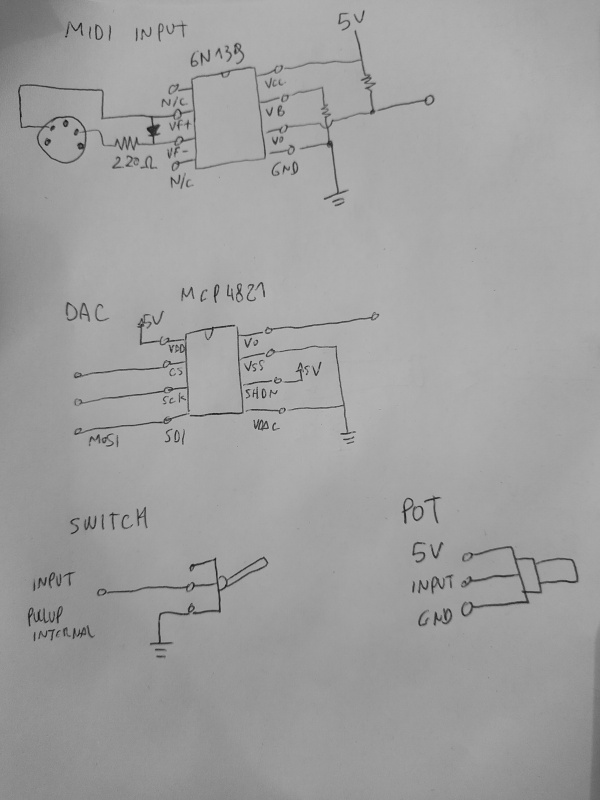 MIDI INPUT
5V
6N138
N/C
VF+
VF-
N/C
220Ω
VCC
VB
VO
GND
DAC
MCP4821
5V
VDD
CS
SCK
SDI
MOSI
VO
VSS
SHDN
5V
SWITCH
INPUT
PULLUP
INTERNAL
POT
5V
INPUT
GND